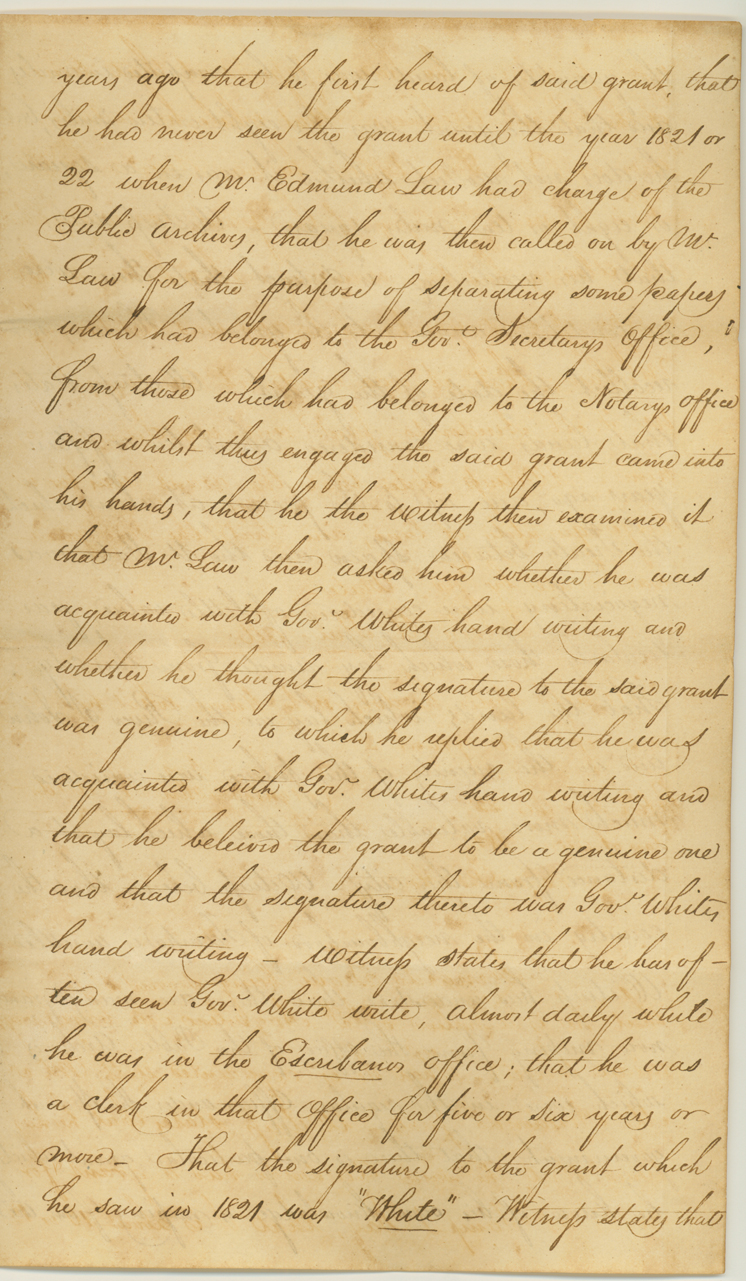 years ago that he first heard of said grant, that
he had never seen the grant until the year 1821 or
22 when Mr. Edmund Law had charge of the
Public Archives, that he was then called on by Mr.
Law for the purpose of separating some papers
which had belonged to the Govt. Secretarys Office,
from those which had belonged to the Notarys office
and whilst thus engaged the said grant came into
his hands, that he the witness then examined it
that Mr. Law then asked him whether he was
acquainted with Govr. Whites hand writing and
whether he thought the signature to the said grant
was genuine, to which he replied that he was
acquainted with Govr. Whites hand writing and
that he beleived the grant to be a genuine one
and that the signature thereto was Govr. Whites
hand writing – witness states that he has of–
ten seen Govr. White write, almost daily while
he was in the Escribanos office; that he was
a clerk in that office for five or six years or
more – That the signature to the grant which
he saw in 1821 was "White" – Witness states that